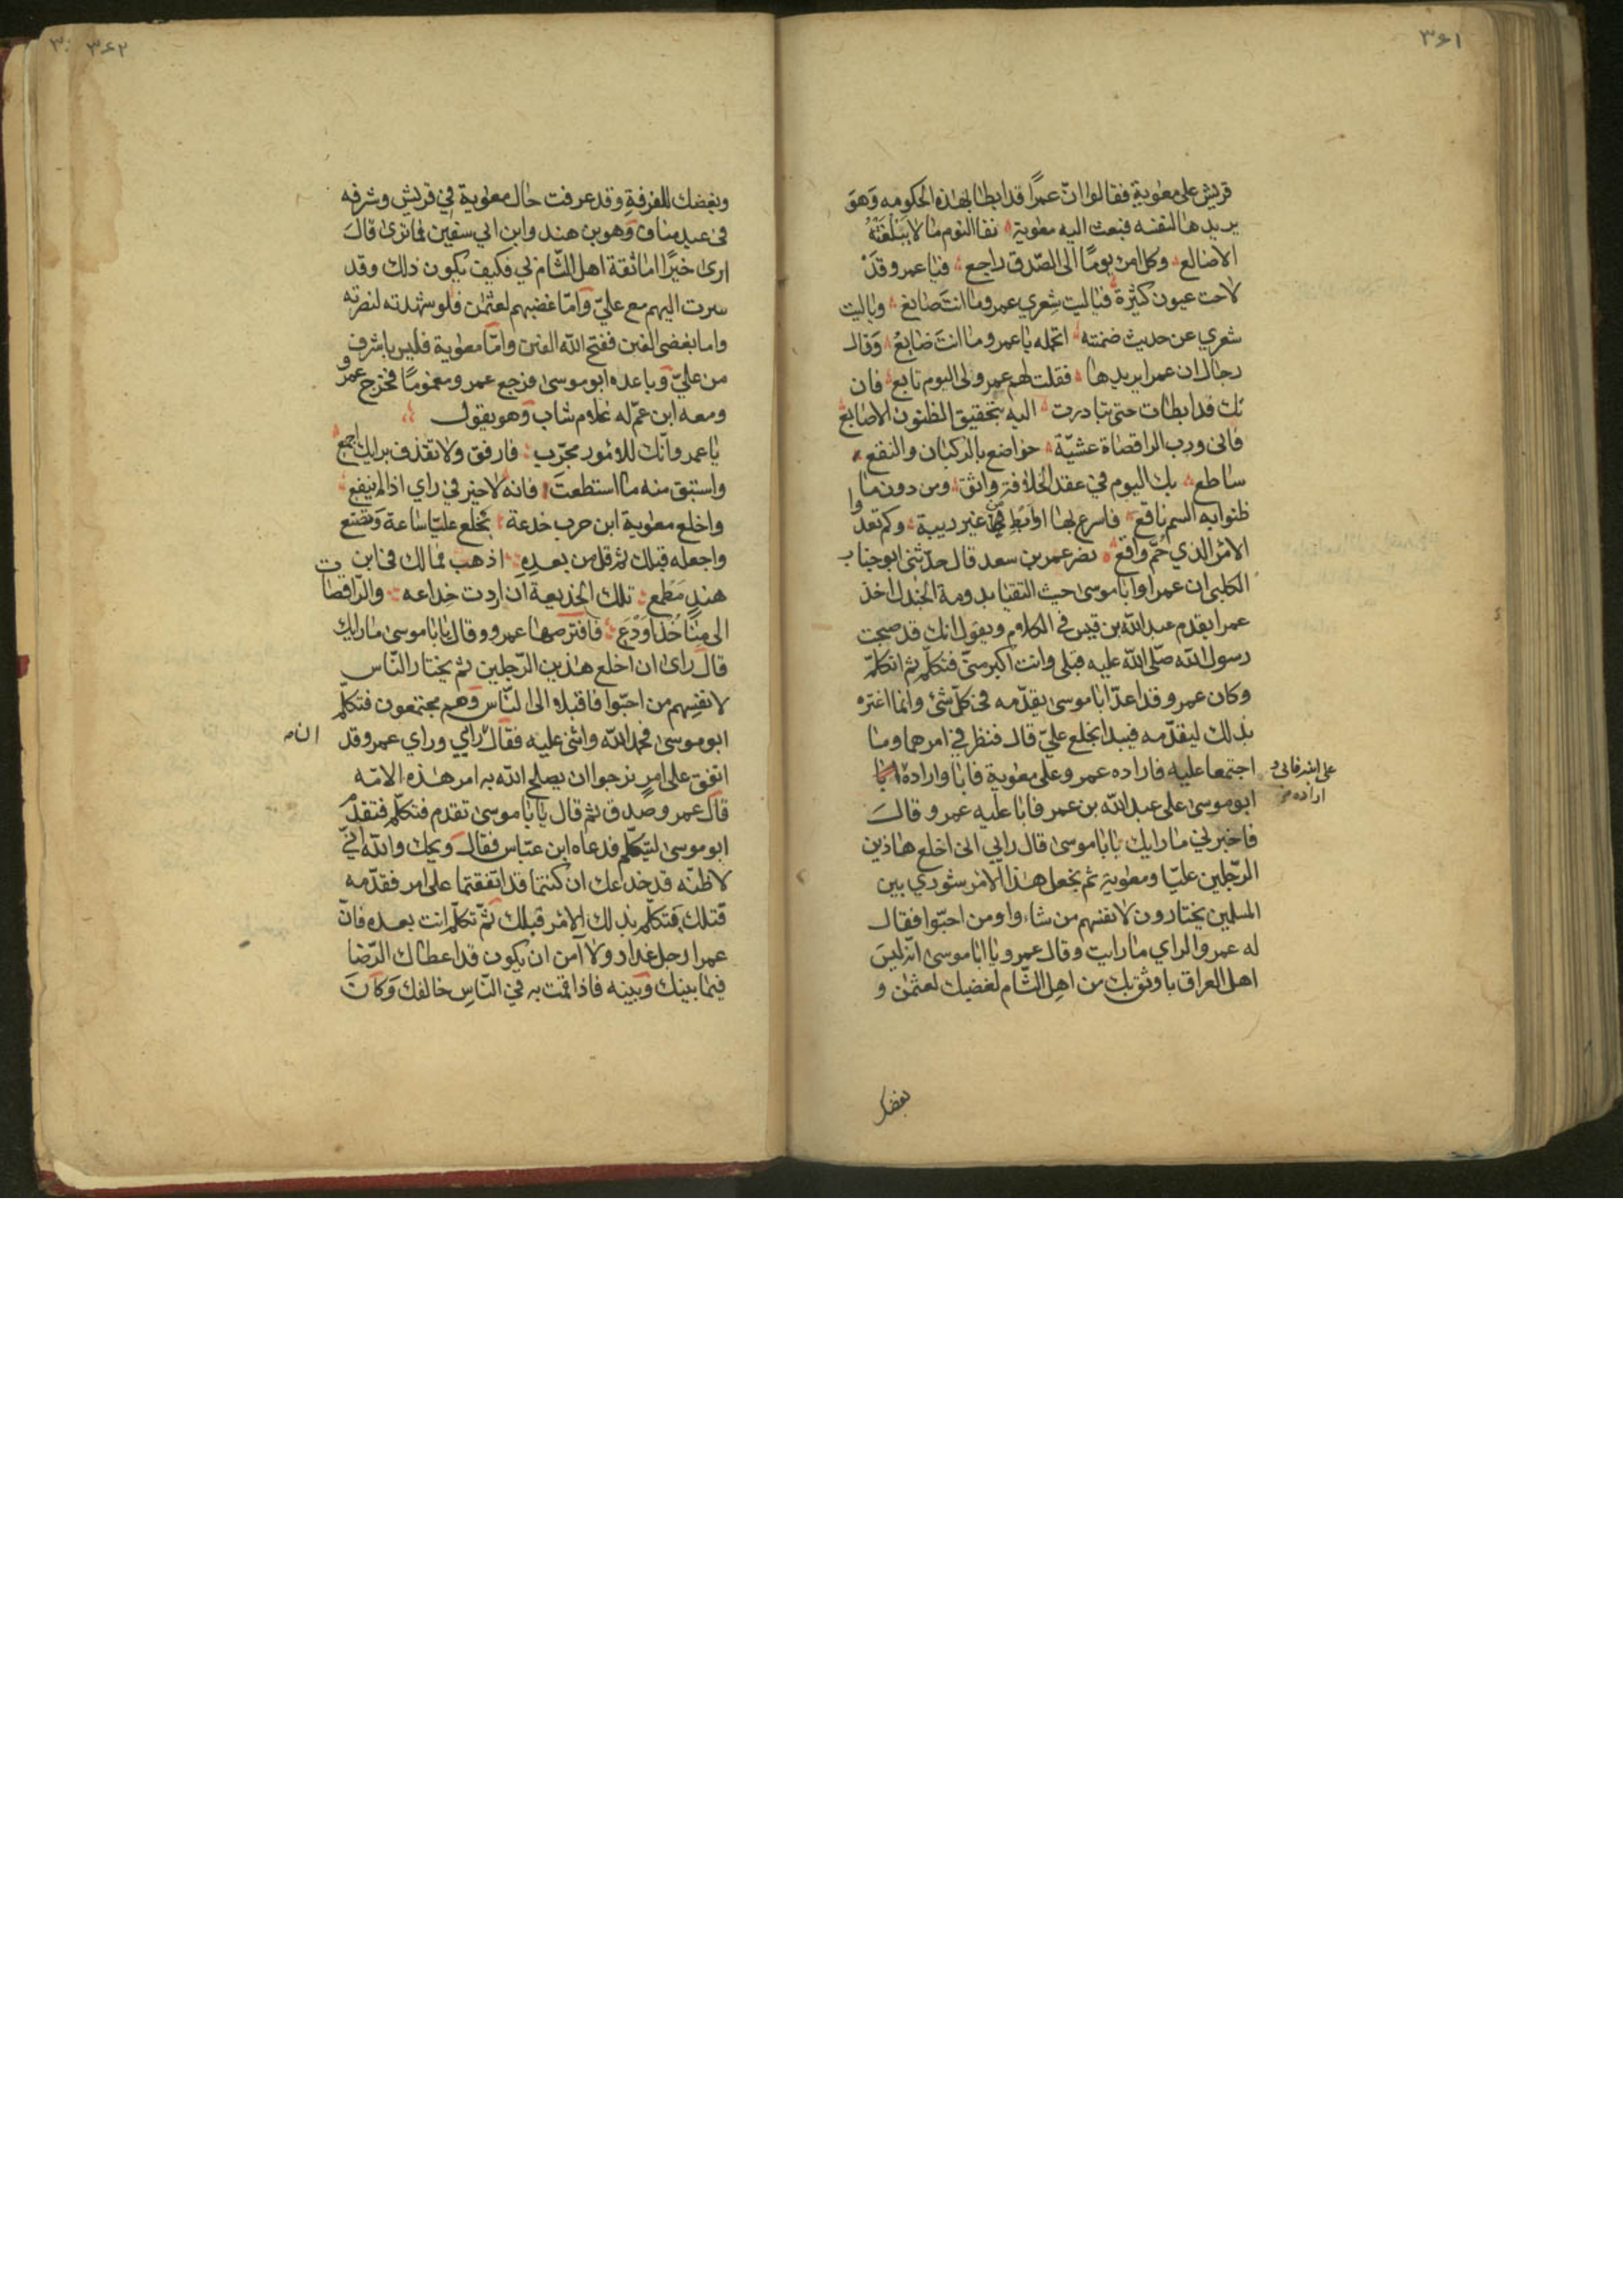 ٣٤١
قريش على معوية فقالوا انّ عمرًا قد ابطا بهذه الحكومه وَهوَ
يريدها لنفسه فبعث اليه معوية نفا النوم ما لا يَبْلغَنْهُ
الاضالع وكل امرئ يومًا الى الصّدق راجع فيا عمرو قَدْ
لاحت عيون كثيرة فياليت شِعري عمرو ما انتَ صانع وياليت
شعري عن حديث ضمنته اتحمله يا عمرو وما انتَ ضابعْ وَقال
رجال ان عمرا يريدها فقلت لهم عمرو لى اليوم تابع فان
تك قد ابطات حتى تبادرت اليه بتحقيق الظنون الاصابع
فانى وربِ الراقصاة عشيّة خواضع بالركبان والنقع
ساطع بك اليوم في عقد الخلافة واثق ومن دون ما
ظنوا به السم ناقع فاسرع بها او ابطِ في غير ريبة وكم تعدوا
الامْر الذي حُمّ واقع نصر عمر بن سعد قال حدّثنى ابو جناب
الكلبى ان عمرا وابا موسى حيث التقيا بدومة الجندل اخذ
عمرا يقدم عبد الله بن قيس فى الكلام ويقول انك قد صحبت
رسول الله صلّى الله عليه قبلى وانت اكبر منىّ فتكلّم ثم اتكلمّ
وكان عمرو قد اعدّ ابا موسى يقدّمه فى كلّ شئ وانما اغتره
بذلك ليقدّمه فيبدا بخلع عليّ قال فنظر في امرهما وما
اجتمعا عليه فاراده عمرو على معوية فابا واراده ابا
على ابنه فابى و
اراده
ابو موسى على عبد الله بن عمر فابا عليه عمرو قالَ
فاخبرني ما رايك يا با موسى قال رايي انى اخلع هاذين
الرّجلين عليّا ومعوية ثم نجعل هذا الامْر شورى بين
المسلمين يختارون لانفسهم من شاءوا ومن احبّوا فقال
له عمرو الراي ما رايت وقال عمرو يا ابا موسى انّه ليسَ
اهل العراق باوثق بك من اهل الشّام لغضبك لعثمٰن و
بغضك
٣٤٢
وبغضك للفرقةِ وقد عرفت حال معوية في قريش وشرفه
فى عبد مناف وَهو بن هند وابن ابي سفين فما ترى قالَ
ارى خيرًا اما ثقة اهل الشّام بي فكيف يكون ذلك وقد
سرت اليهم مع عليّ وَامّا غضبهم لعثمٰن فلو شهدته لنصرته
واما بغضى الفتن فقبّح الله الفتن وامّا معوية فليس باشرف
من عليّ وباعده ابو موسى فرجع عمرو مغمومًا فخرج عمرو
ومعه ابن عمّ له غلام شاب وَهو يقول
يا عمرو انّك للامُور مجرّب فارفق ولا تقذف برايك اجمع
واستبق منه ما استطعتَ فانه لا خير في راي اذا لم ينفع
واخلع معوية ابن حرب خدعة يخلع عليّا ساعة وَتصَنع
واجعله قبلك ثم قل من بعدِهِ اذهب فمالك فى ابن
هندٍ مَطْمع تلك الخديعة ان اردت خِداعه والرّاقصات
الى مِنًا خُذ اودَع فافترصها عمرو وقال يا با موسى ما رايك
قال راى ان اخلع هذين الرّجلين ثم يختار النّاس
لانفسِهم من احبّوا فاقبلا الى النّاس وَهم مجتمعون فتكلّم
ابو موسى فحمد الله واثنى عليه فقال رَأيي وراي عمرو قد
اتفق على امرٍ نرجوا ان يصلح الله به امر هذه الامّه
قال عمرو صدق ثم قال يا با موسى تقدم فتكلّم فتقدّم
ابو موسى ليتكلّم فدعاه ابن عبّاس فقال ويحك والله انيّ
لاظنّه قد خدعك ان كنتما قد اتفقتما على امر فقدّمه
قبلك فتكلّم بذلك الامْر قبلك ثمّ تكلّم انت بعده فانّ
عمرا رجل غدار ولا آمن ان يكون قد اعطاك الرّضا
فيما بينك وَبينه فاذا قمت به في النّاسِ خالفك وَكانَ